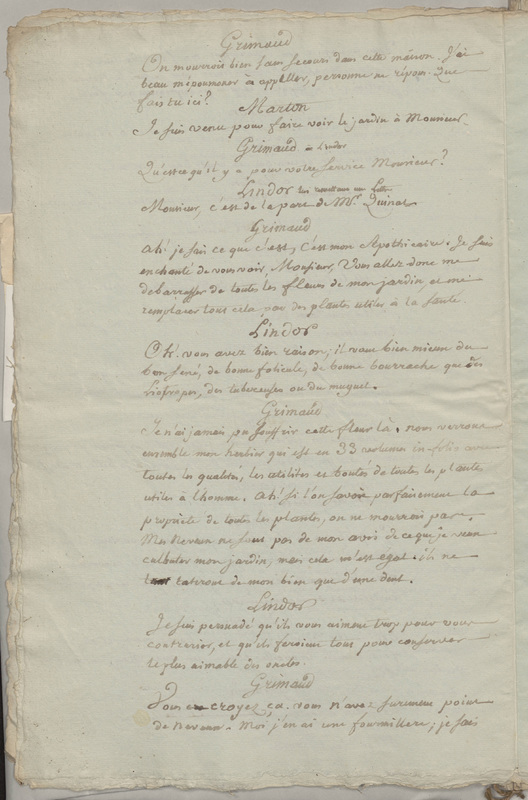 Grimaud
On mourrois bien sans secours dans cette maison. J'ai
beau m'époumoner à appeller, personne ne répon. Que
fais tu ici?
Marton
Je suis venue pour faire voir le jardin à Monsieur.
Grimaud à Lindor
Qu'est ce qu'il y a pour votre service Monsieur?
Lindor lui remettant une Lettre
Monsieur, c'est de la part de Mr. Quinat.
Grimaud
Ah! je sais ce que c'est, c'est mon Apothicaire. Je suis
enchanté de vous voir, Monsieur, Vous allez donc me
debarrasser de toutes les fleurs de mon jardin et me
remplacer tout cela par des plantes utiles à la santé.
Lindor
Oh. vous avez bien raison; il vaut bien mieux du
bon sené, de bonne folicule, de bonne bourrache que des
liotropes, des tubereuses ou du muguet.
Grimaud
Je n'ai jamais pu souffrir cette fleur là. nous verrons
ensemble mon herbier qui est en 33 volumes in folio avec
toutes les qualités, les utilités et bontés de toutes les plantes
utiles à l'homme. Ah! si l'on savoit parfaitement la
propriété de toutes les plantes, on ne mourroit pas.
Mes Neveux ne sont pas de mon avis de ce que je veux
culbuter mon jardin, mais cela m'est egal. ils ne
tateront de mon bien que d'une dent.
Lindor
Je suis persuadé qu'ils vous aiment trop pour vous
contrarier, et qu'ils feroient tout pour conserver
le plus aimable des oncles.
Grimaud
Vous croyez ça. vous n'avez surement point
de neveux. Moi, j'en ai une fourmillere; je sais